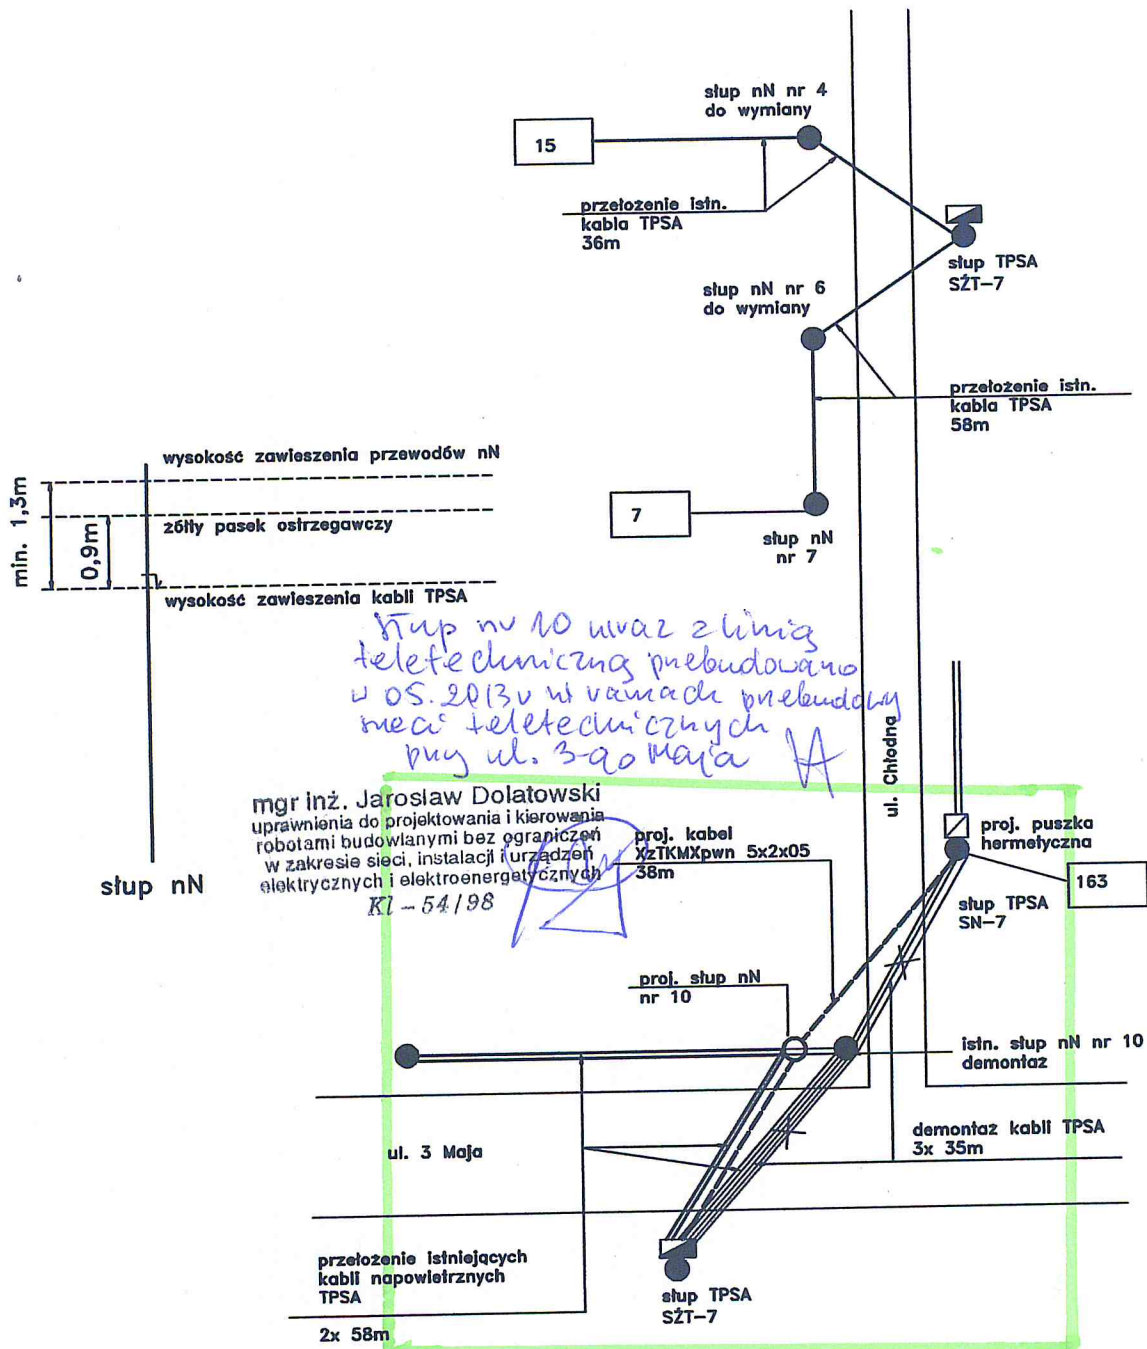 słup nN nr 4
do wymiany
15
przełożenie istn.
kabla TPSA
36m
słup TPSA
SŻT-7
słup nN nr 6
do wymiany
przełożenie istn.
kabla TPSA
58m
7
słup nN
nr 7
wysokość zawieszenia przewodów nN
min. 1,3m
żółty pasek ostrzegawczy
0,9m
wysokość zawieszenia kabli TPSA
słup nN
Słup nr 10 wraz z linią
teletechniczną przebudowano
w 05.2013r w ramach przebudowy
sieci teletechnicznych
przy ul. 3-go Maja
mgr inż. Jarosław Dolatowski
uprawnienia do projektowania i kierowania
robotami budowlanymi bez ograniczeń
w zakresie sieci, instalacji i urządzeń
elektrycznych i elektroenergetycznych
Kl - 54/98
ul. Chłodna
proj. kabel
XzTKMXpwn 5x2x05
38m
proj. puszka
hermetyczna
163
słup TPSA
SN-7
proj. słup nN
nr 10
istn. słup nN nr 10
demontaż
ul. 3 Maja
demontaż kabli TPSA
3x 35m
przełożenie istniejących
kabli napowietrznych
TPSA
2x 58m
słup TPSA
SŻT-7